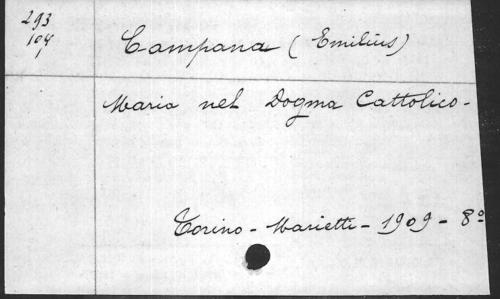 293
104
1
Campana (Emilius)
Maria nel Dogma Cattolico -
Torino - Marietti - 1909 - 8º